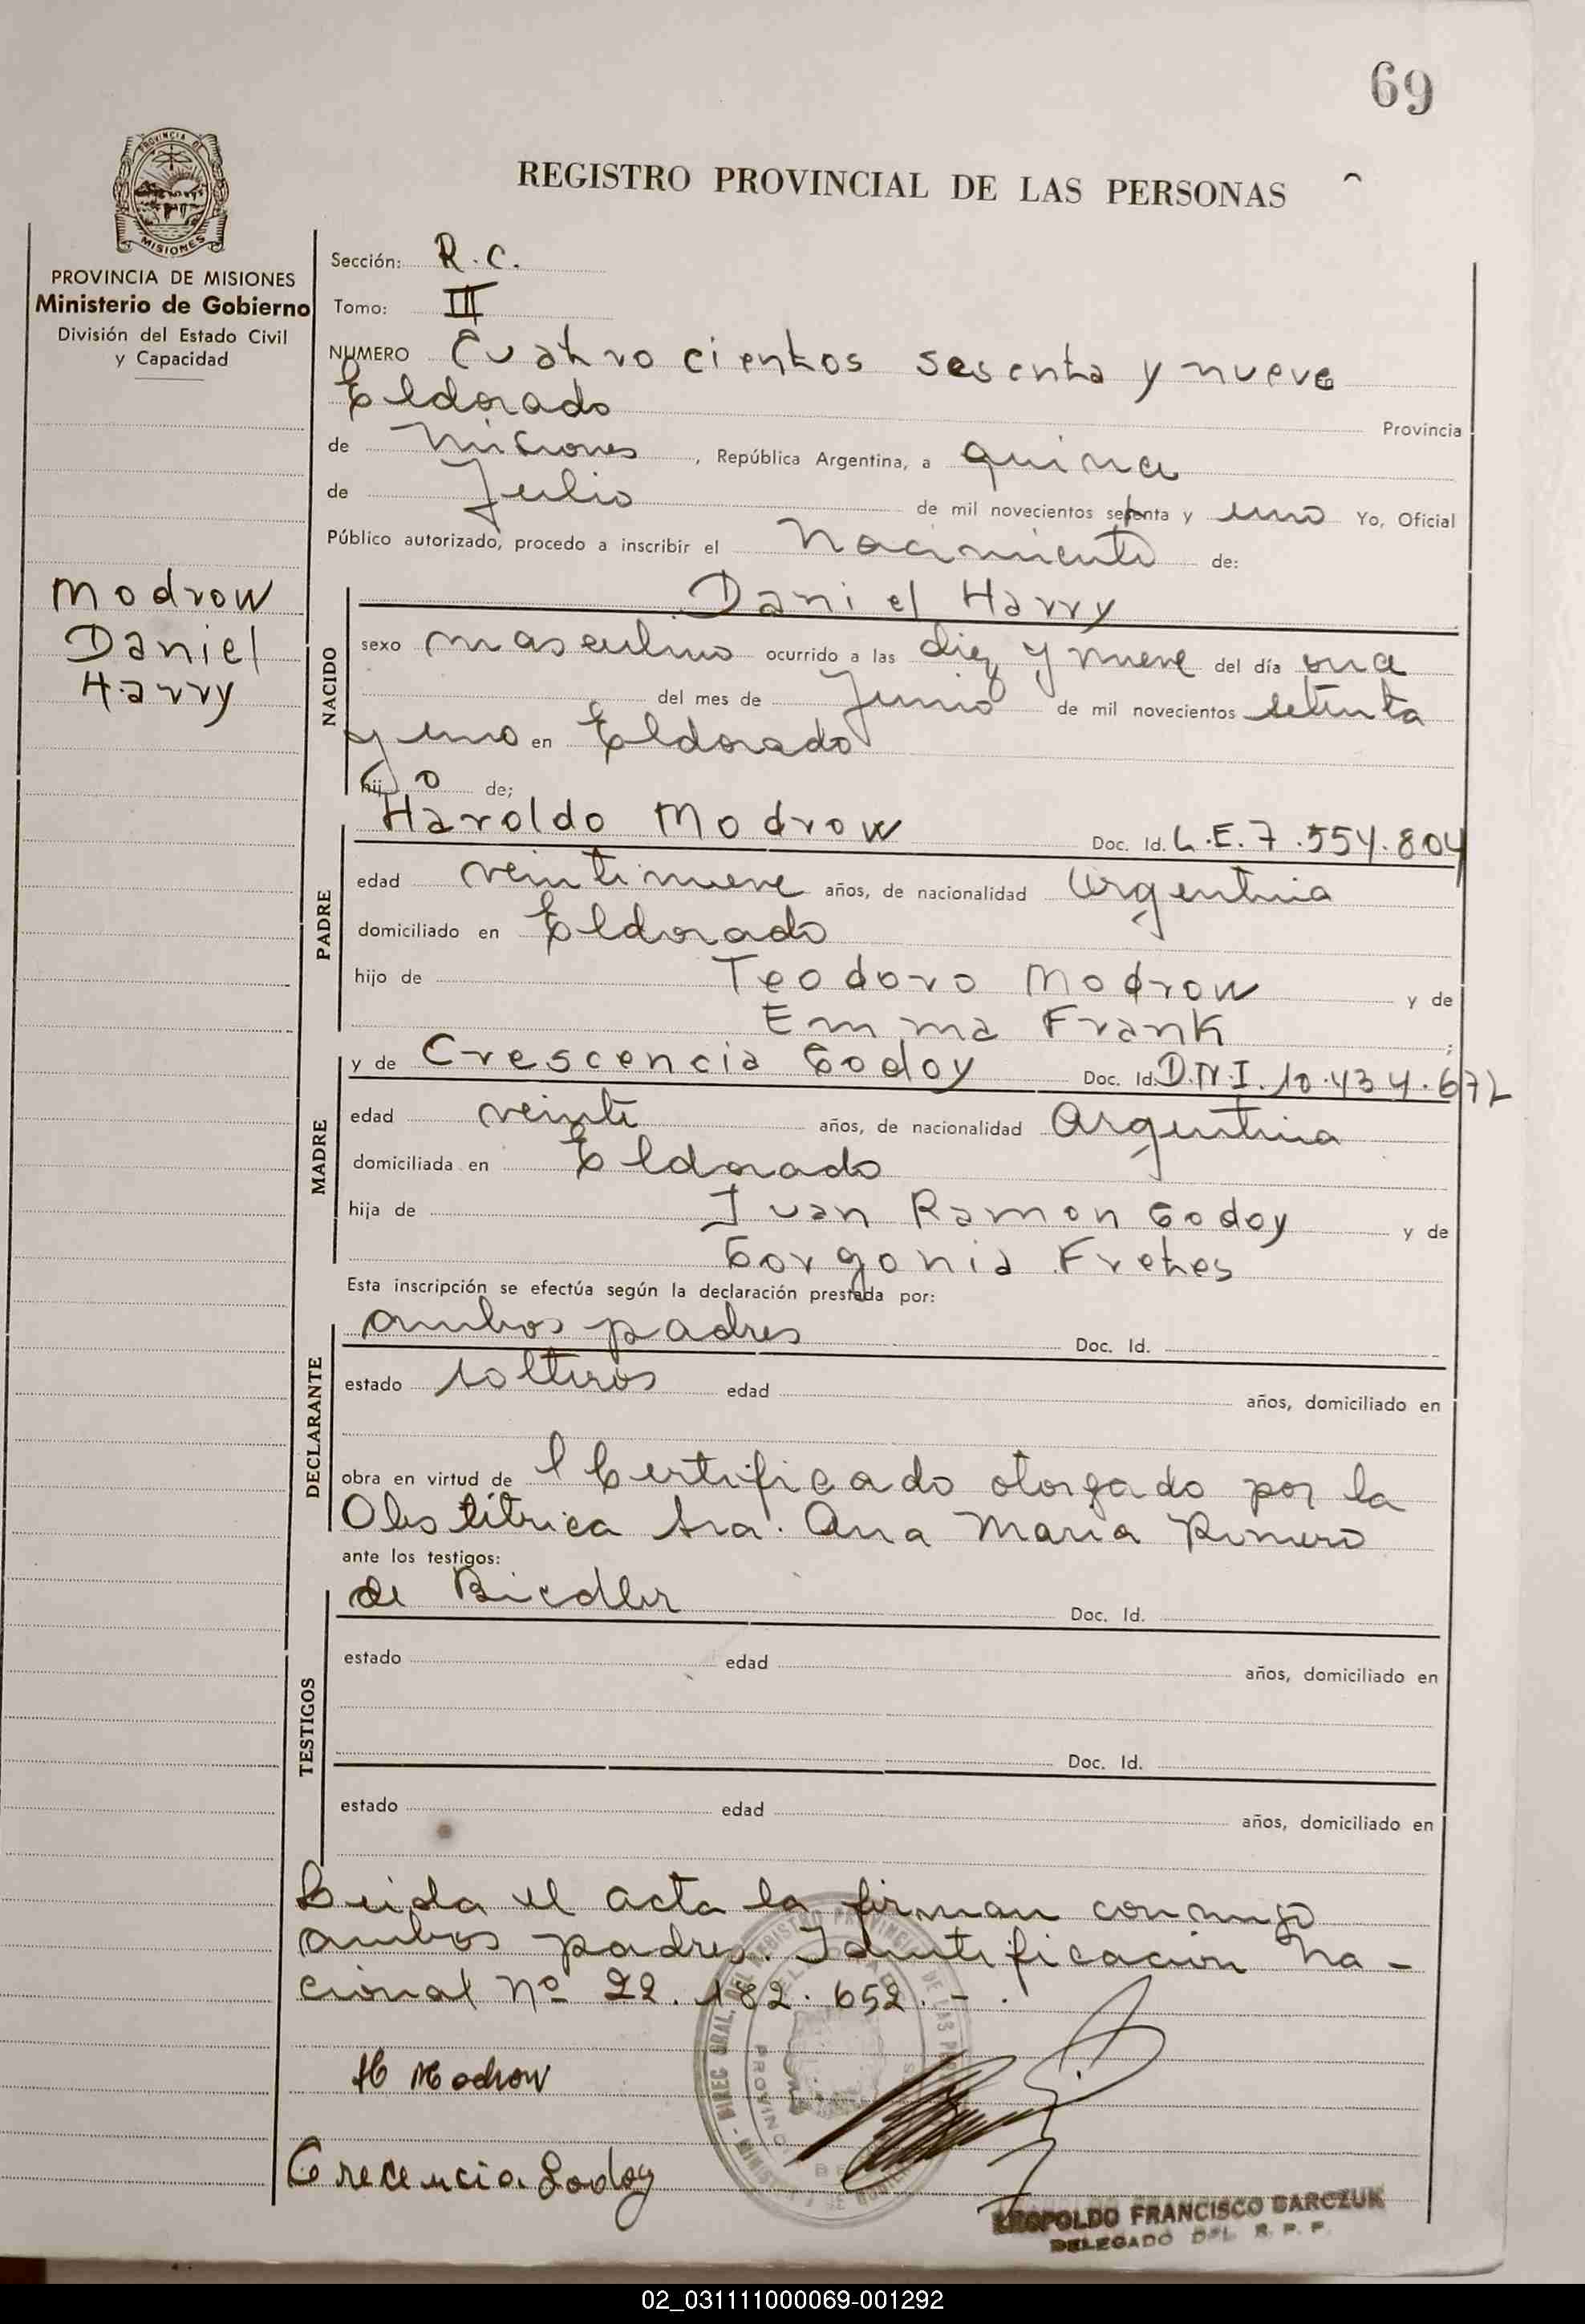 69
REGISTRO PROVINCIAL DE LAS PERSONAS
PROVINCIA DE MISIONES
PROVINCIA DE MISIONES
Ministerio de Gobierno
División del Estado Civil
y Capacidad
Modrow
Daniel
Harry
Sección: R.C.
Tomo: III
NUMERO Cuatro cientos sesenta y nueve
Eldorado Provincia
de Misiones, República Argentina, a quince
de Julio de mil novecientos setenta y uno Yo, Oficial
Público autorizado, procedo a inscribir el Nacimiento de:
NACIDO
Daniel Harry
sexo masculino ocurrido a las diez y nueve del día once
del mes de Junio de mil novecientos setenta
y uno en Eldorado
hijo de;
PADRE
Haroldo Modrow Doc. Id. L.E. 7.554.804
edad veintinueve años, de nacionalidad Argentina
domiciliado en Eldorado
hijo de Teodoro Modrow y de
Emma Frank ;
MADRE
y de Crescencia Godoy Doc. Id. D.N.I. 10.434.672
edad veinte años, de nacionalidad Argentina
domiciliada en Eldorado
hija de Juan Ramon Godoy y de
Gorgonia Fretes
Esta inscripción se efectúa según la declaración prestada por:
DECLARANTE
ambos padres Doc. Id.
estado solteros edad años, domiciliado en
obra en virtud de l Certificado otorgado por la
Obstetrica Sra. Ana Maria
ante los testigos:
TESTIGOS
de Doc. Id.
estado edad años, domiciliado en
Doc. Id.
estado edad años, domiciliado en
Leida el acta la firman conmigo
ambos padres. Identificacion Na-
cional Nº 22.182.652.-.
H Modrow
Crecencia Godoy
LEOPOLDO FRANCISCO DARCZUK
DELEGADO DEL R. P. P.
02_031111000069-001292